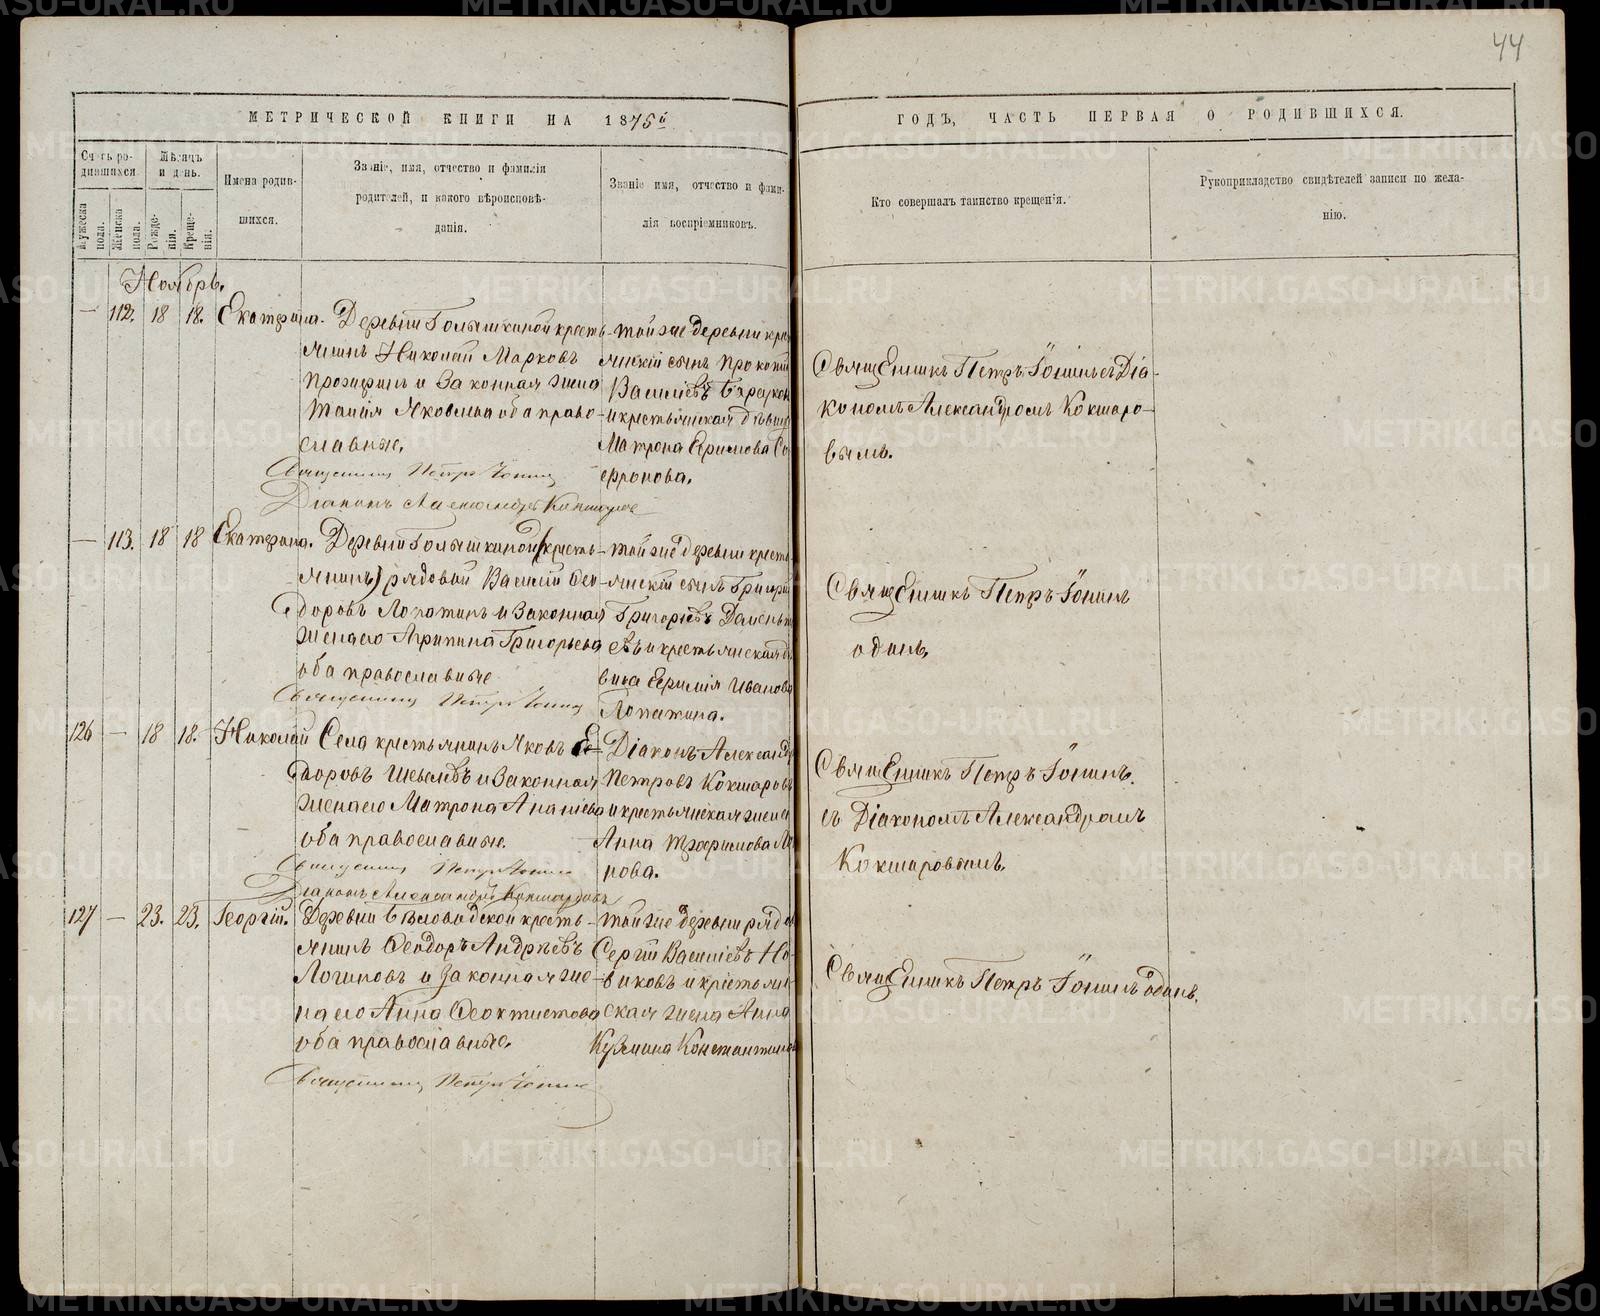 44
МЕТРИЧЕСКОЙ КНИГИ НА 1875й
ГОДЪ, ЧАСТЬ ПЕРВАЯ О РОДИВШИХСЯ.
Счетъ родившихся
Мѣсяцъ и день.
Мужеска пола.
Женска пола.
Рожденія.
Крещенія.
Имена родившихся.
Званіе, имя, отчество и фамилія
родителей, и какого вѣроисповѣданія.
Званіе имя, отчество и фамилія воспріемниковъ.
Кто совершалъ таинство крещенія.
Рукоприкладство свидѣтелей записи по желанію.
Ноябрь.
— 112. 18 18. Екатерина.
Деревни Голышкиной кресть-
янинъ Николай Марковъ
и законная жена
Яковлева оба право-
славные.
Священникъ Петръ
Діаконъ Александръ Кокшаровъ
той же деревни крес
янскій сынъ Прокопій
Васильевъ
и крестьянская дѣвица
Матрона Ефимова Со
фронова.
Священникъ Петръ съ Діа-
кономъ Александромъ Кокшаро-
вымъ.
— 113. 18 18 Екатерина.
Деревни Голышкиной (кресть-
янинъ) рядовой Василій Ѳео-
доровъ Лопатинъ и законная
жена его Агрипина Григорьева
оба православные
Священникъ Петръ
той же деревни кресть
янскій сынъ Григорій
Григорьевъ
и крестьянская дѣ
вица Ефимія Иванова
Лопатина.
Священникъ Петръ
одинъ.
126 — 18 18. Николай
Села крестьянинъ Яковъ Ѳе-
доровъ и законная
жена его Матрона Ананіева
оба православные.
Священникъ Петръ
Діаконъ Александръ Кокшаровъ
Діаконъ Александръ
Петровъ Кокшаровъ
и крестьянская жена
Анна Трофимова
нова.
Священникъ Петръ
съ Діакономъ Александромъ
Кокшаровымъ.
127 — 23. 23. Георгій.
Деревни кресть-
янинъ Ѳеодоръ Андреевъ
Логиновъ и законная же-
на его Анна Ѳеоктистова
оба православные.
Священникъ Петръ
той же деревни рядов
Сергій Васильевъ Но-
виковъ и крестьян
ская жена Анна
Кузмина Константинова
Священникъ Петръ одинъ.
METRIKI.GASO-URAL.RU